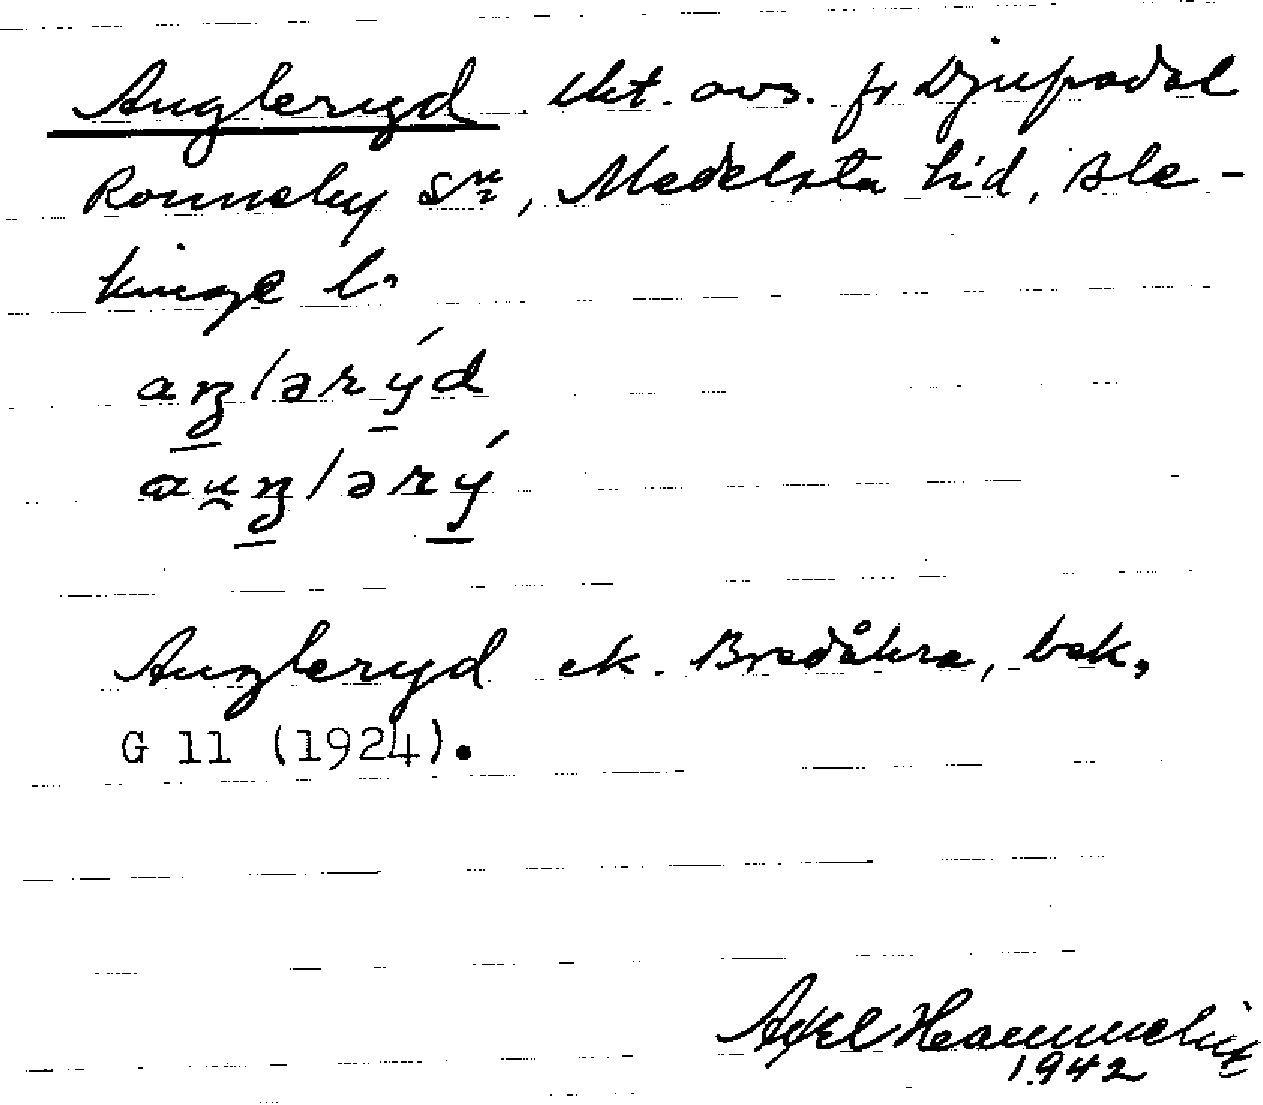 Angleryd lht. avs. fr Djupadal
Ronneby sn, Medelsta hd, Ble-
kinge l.
aŋlərýd
auŋlərý
Angleryd ek. Bredåkra, bek,
G 11 (1924).
Axel Hammelin
1942